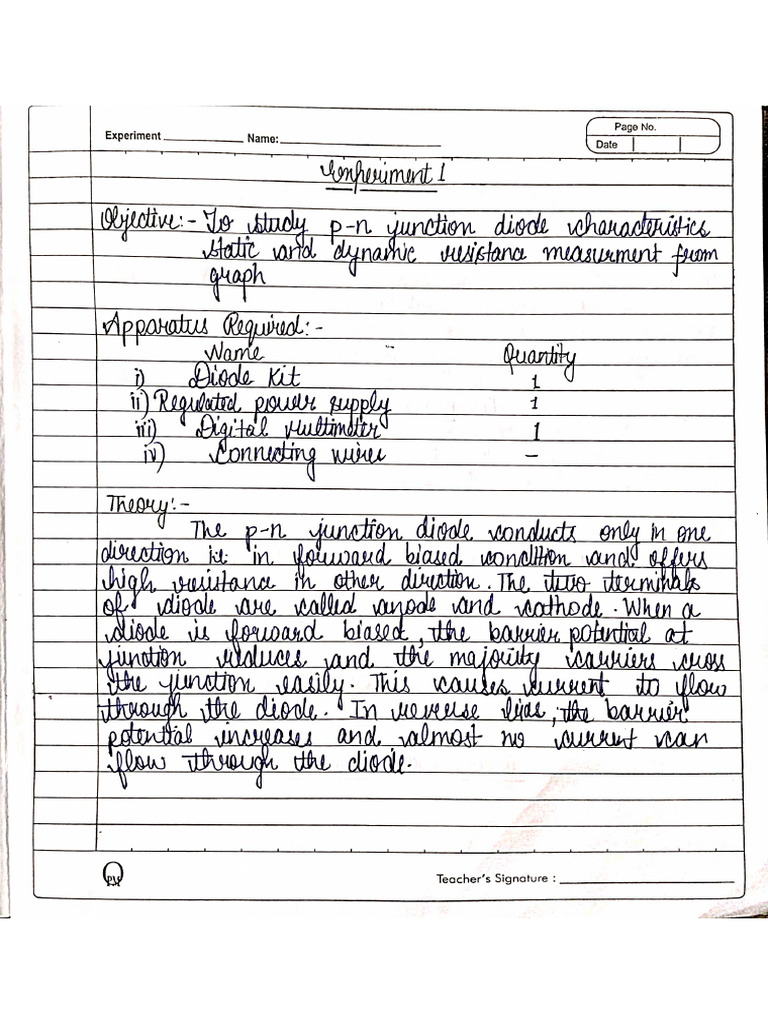 Experiment Name:
Page No.
Date
Experiment 1
Objective:- To study p-n junction diode characteristics
static and dynamic resistance measurment from
graph
Apparatus Required:-
Name Quantity
i) Diode Kit 1
ii) Regulated power supply 1
iii) Digital Multimeter 1
iv) Connecting wires -
Theory:-
The p-n junction diode conducts only in one
direction i.e. in forward biased condition and offers
high resistance in other direction. The two terminals
of diode are called anode and cathode. When a
diode is forward biased, the barrier potential at
junction reduces and the majority carriers cross
the junction easily. This causes current to flow
through the diode. In reverse bias, the barrier
potential increases and almost no current can
flow through the diode.
Teacher's Signature :